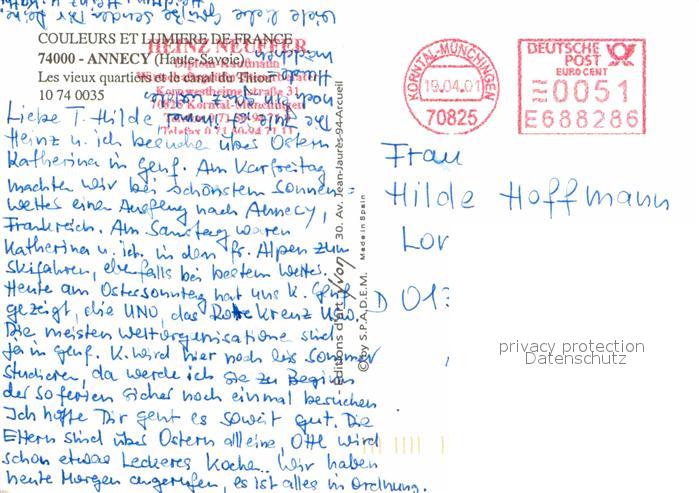 COULEURS ET LUMIERE DE FRANCE
74000 - ANNECY (Haute-Savoie)
Les vieux quartiers et le canal du Thiou
10 74 0035
HEINZ NEUFFER
Kornwestheimer straße 31
Liebe T. Hilde
Heinz u. ich besuchen über Ostern
Katherina in Genf. Am Karfreitag
machten wir bei schönstem Sonnen-
wetter einen Ausflug nach Annecy,
Frankreich. Am Samstag waren
Katherina u. ich in den fr. Alpen zum
skifahren, ebenfalls bei bestem Wetter.
Heute am Ostersonntag hat uns K. Genf
gezeigt, die UNO, das Rote Kreuz usw.
Die meisten Weltorganisationen sind
ja in Genf. K. wird hier noch bis Sommer
studieren, da werde ich sie zu Beginn
der Soferien sicher noch einmal besuchen.
Ich hoffe Dir geht es soweit gut. Die
Eltern sind über Ostern alleine, Otti wird
schon etwas Leckeres Kochen. Wir haben
heute Morgen angerufen, es ist alles in Ordnung.
Viele liebe Grüße senden Dir
Editions d'art Yvon 30, Av. Jean-Jaurès-94-Arcueil
© by S.P.A.D.E.M. Made in Spain
KORNTAL-MÜNCHINGEN
19.04.01
70825
DEUTSCHE
POST
EURO CENT
0051
E688286
Frau
Hilde Hoffmann
Lor
D 01
privacy protection
Datenschutz